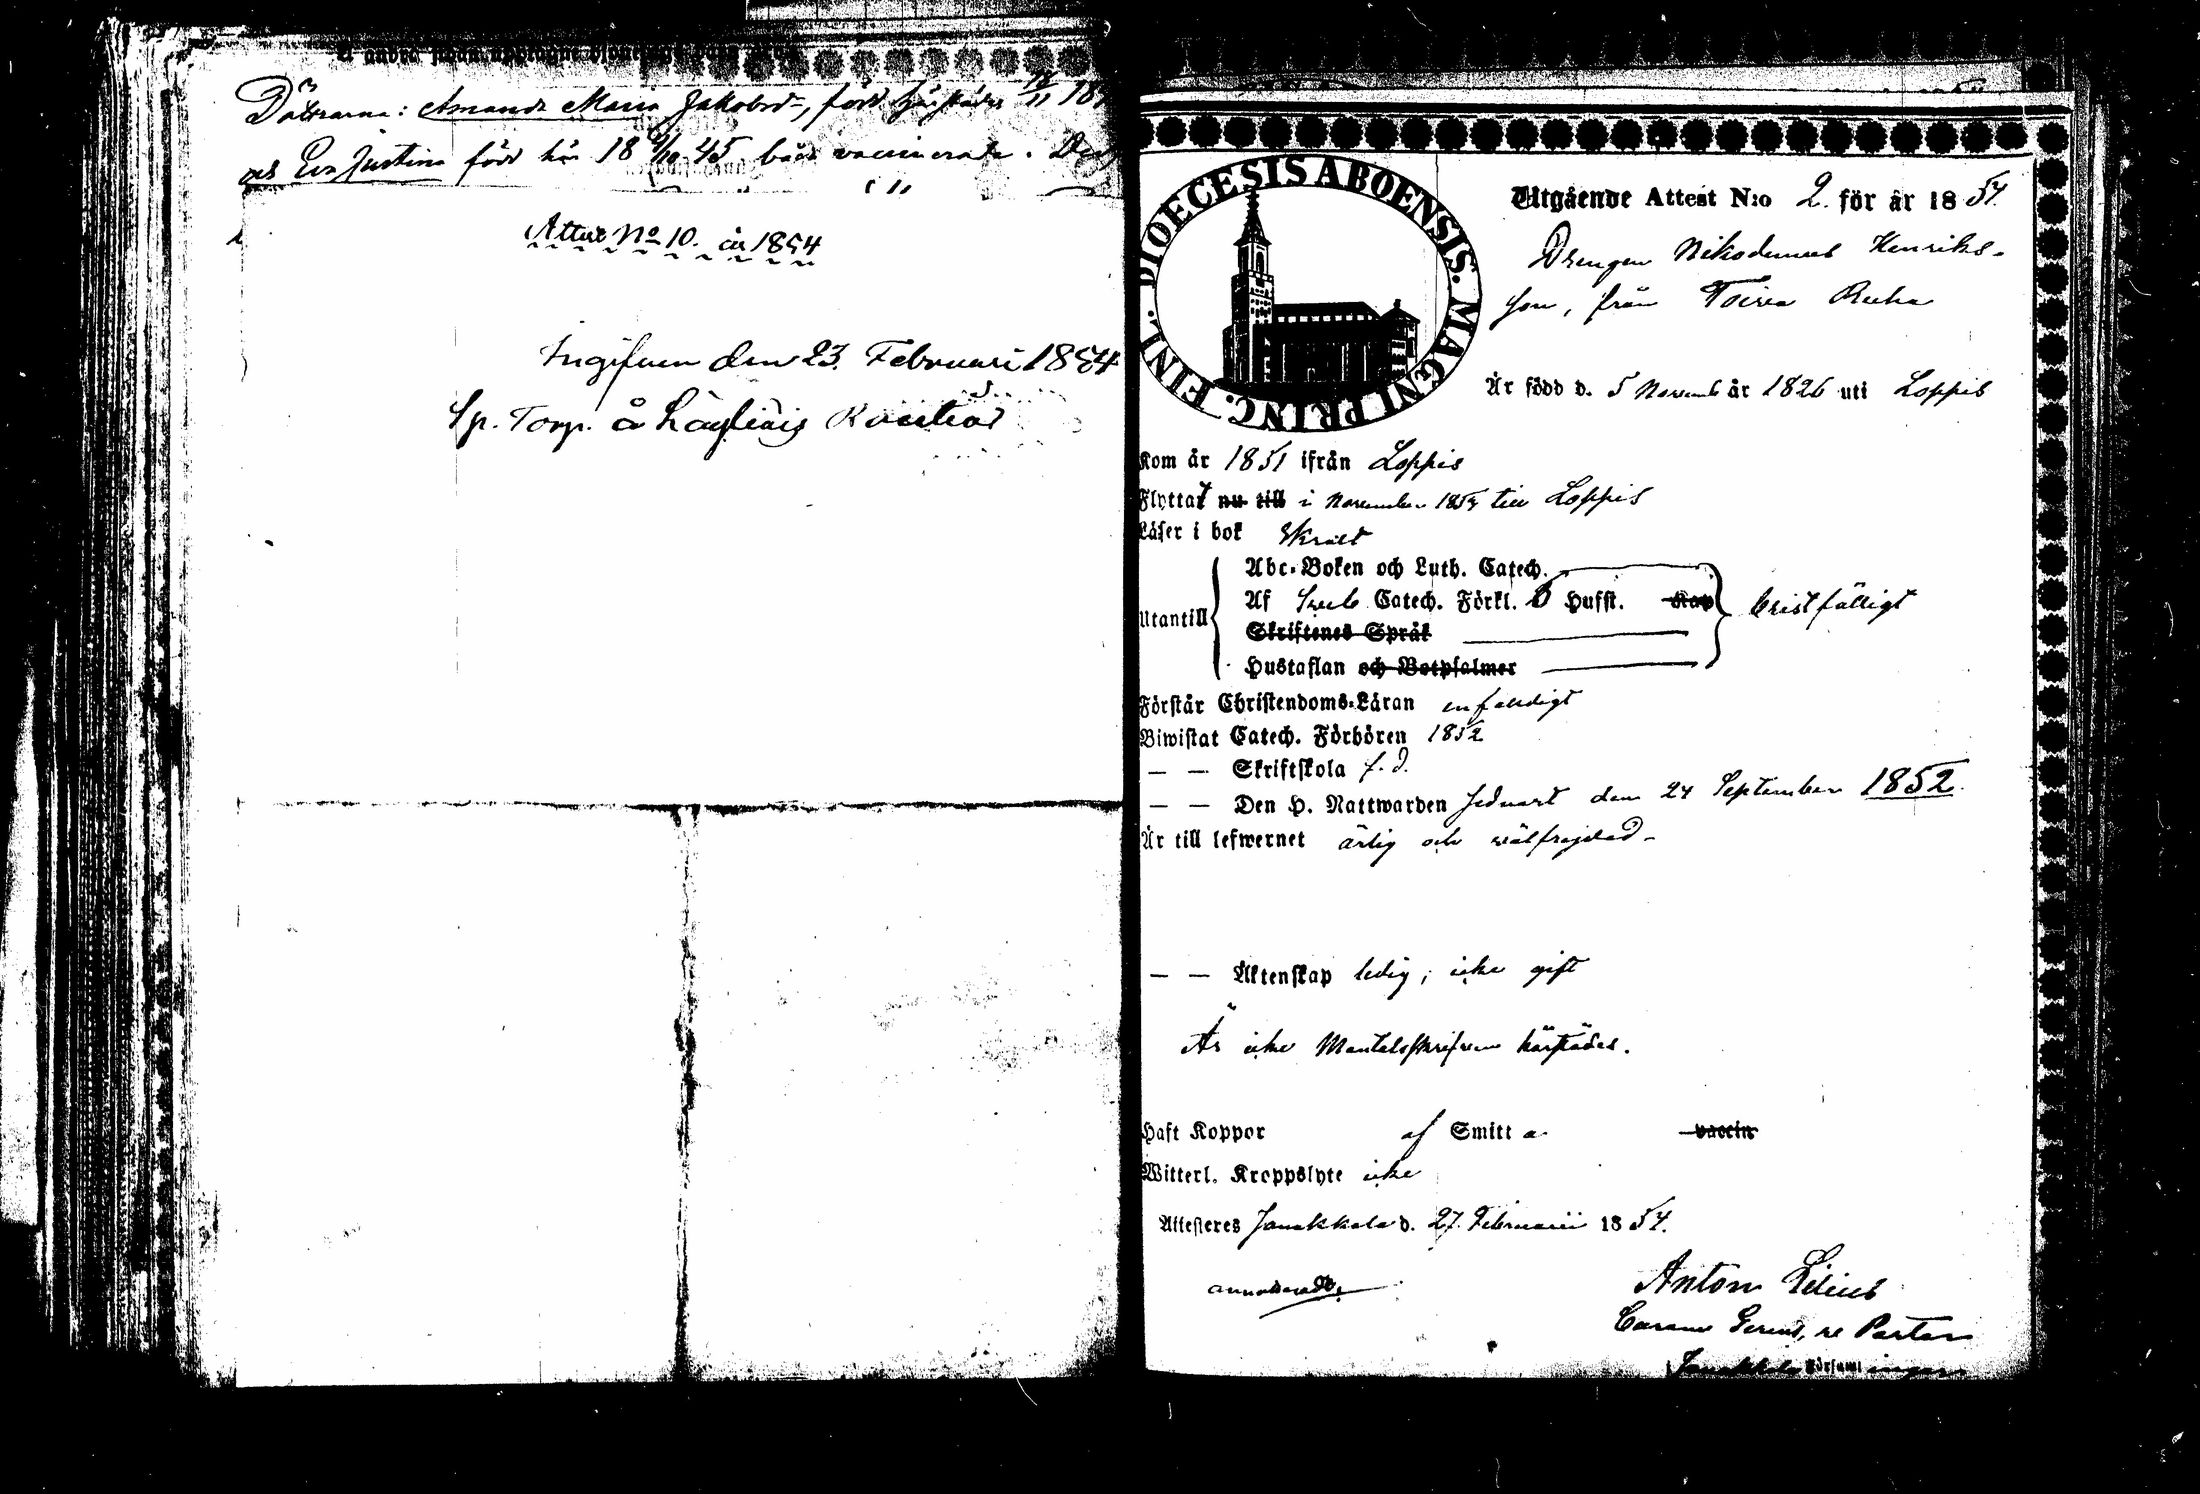 Döttrarna: Amanda Maria Jakobsd-, född härstädes 18/11 18
och Eva Justina född här 18 6/10 45 båda vaccinerade.
Attest No 10. år 1854
Ingifven den 23. Februari 1854
Sp. Torp. å
DIOECESIS ABOENSIS. MAGNI PRINC. FINL.
Utgående Attest N:o 2. för år 1854
Drengen Nikodemus Henriks-
son, från Toivea
Är född d. 5 Novemb år 1826 uti Loppis
Kom år 1851 ifrån Loppis
Flyttat nu till i November 1853 till Loppis
Läser i bok Skralt
Utantill
Abc-Boken och Luth. Catech.
Af Sveb Catech. Förkl. 6 Hufst. Kap
Skriftenes Språk
Hustaflan och Botpsalmer
bristfälligt
Förstår Christendoms-Läran enfaldigt
Biwistat Catech. Förhören 1852
— — Skriftskola f. d.
— — Den H. Nattwarden sednast den 24 September 1852.
Är till lefwernet ärlig och välfrejdad-
— — Äktenskap ledig, icke gift
Är icke Mantalsskrifven härstädes.
Haft Koppor af Smitta vaccin
Witterl. Kroppslyte icke
Attesteres Janakkala d. 27. Februarii 1854.
Anton Lilius
Gerens, Pastor
Janakkala Församl